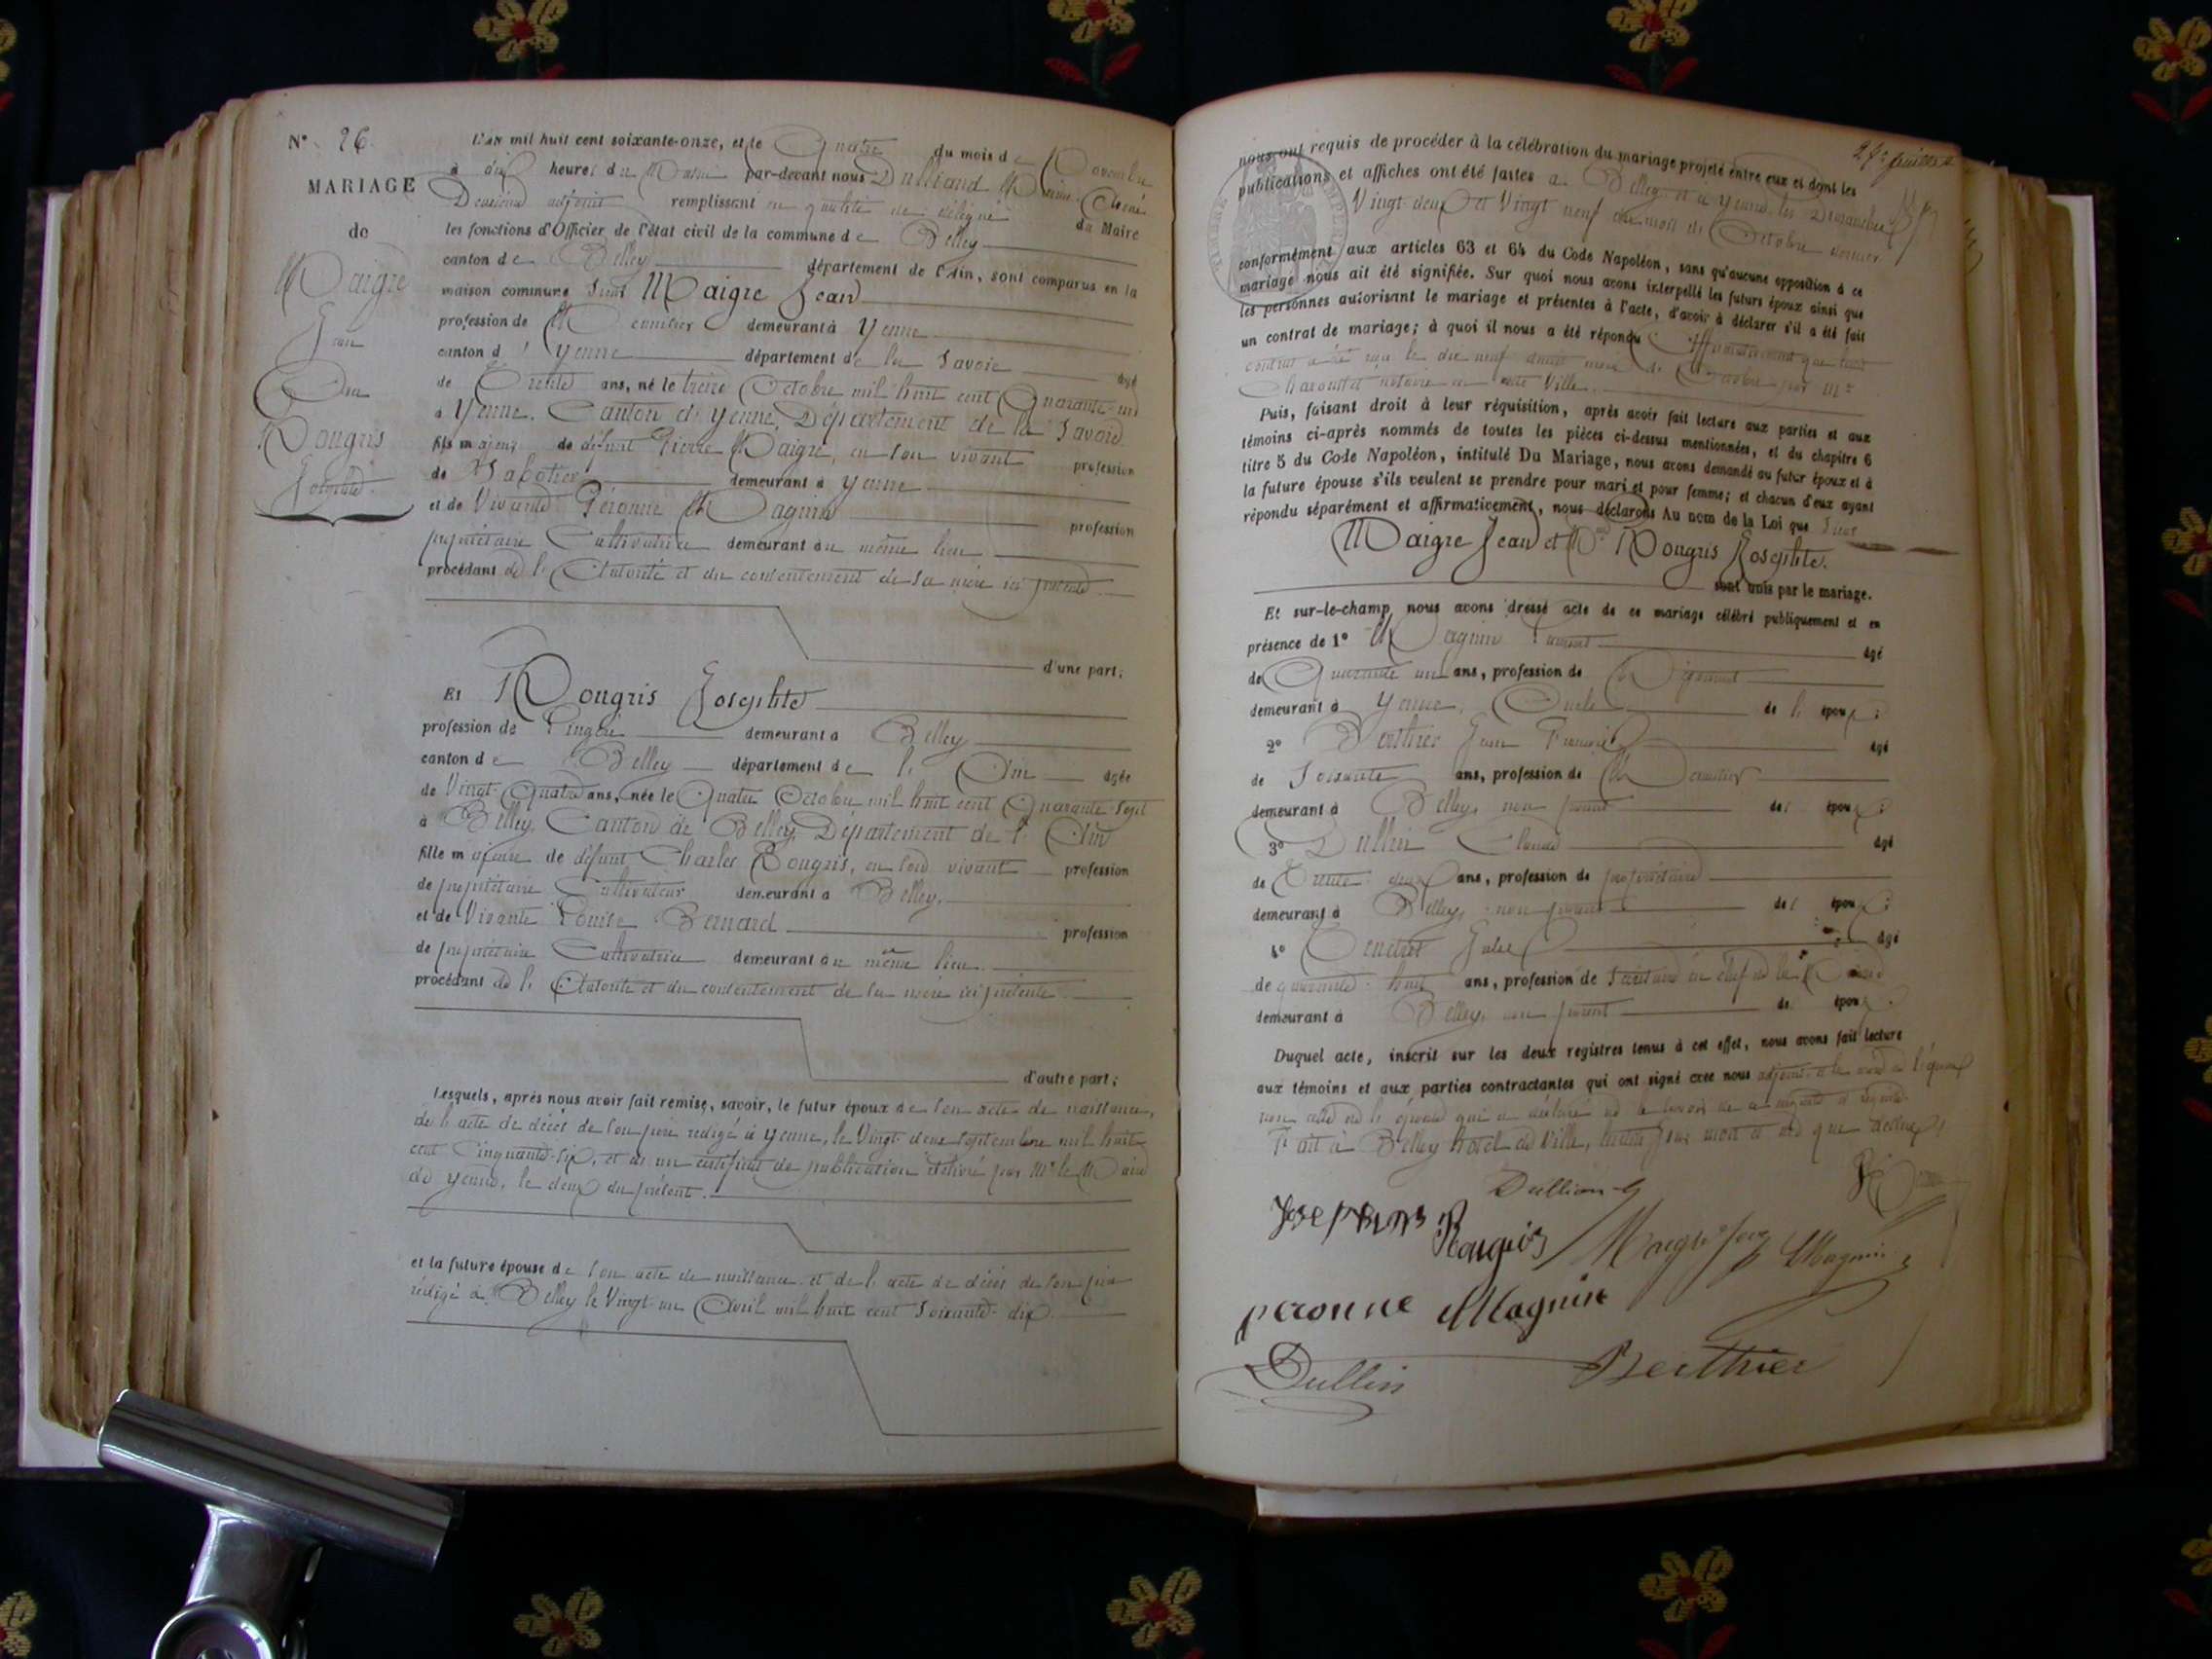 N° 26.
MARIAGE
de
Maigre
Jean
Rougris
Josephte
L'AN mil huit cent soixante-onze, et le Quatre du mois de Novembre
à dix heures du Matin par-devant nous
adjoint remplissant en qualité de délégué du Maire
les fonctions d'Officier de l'état civil de la commune de Belley
canton de Belley département de l'Ain, sont comparus en la
maison commune Maigre Jean
profession de demeurant à Yenne
canton d' Yenne département de la Savoie âgé
de Trente ans, né le treize Octobre mil huit cent Quarante-un
à Yenne, Canton d' Yenne, Département de la Savoie
fils majeur de défunt Pierre Maigre, en son vivant profession
de Sabotier demeurant à Yenne
et de Vivante Péronne Magnin profession
propriétaire Cultivatrice demeurant au même lieu
procédant de l'Autorité et du consentement de sa mère ici présente
d'une part;
Et Rougris Josephte
profession de Lingère demeurant à Belley
canton de Belley département de l'Ain âgée
de Vingt-Quatre ans, née le Quatre Octobre mil huit cent Quarante-Sept
à Belley, Canton de Belley, Département de l'Ain
fille majeure de défunt Charles Rougris, en son vivant profession
de propriétaire Cultivateur demeurant à Belley,
et de Vivante Louise Bernard profession
de propriétaire Cultivatrice demeurant au même lieu
procédant de l'Autorité et du consentement de sa mère ici présente
d'autre part;
Lesquels, après nous avoir fait remise, savoir, le futur époux de son acte de naissance,
de l'acte de décès de son père rédigé à Yenne, le Vingt-deux Septembre mil huit
cent Cinquante-six, et d'un certificat de publication délivré par Mr le Maire
de Yenne, le deux du présent.
et la future épouse de son acte de naissance et de l'acte de décès de son père
rédigé à Belley le Vingt-un Avril mil huit cent Soixante-dix.
27e feuillet
nous ont requis de procéder à la célébration du mariage projeté entre eux et dont les
publications et affiches ont été faites à Belley et à Yenne les Dimanches
Vingt-deux et Vingt neuf du mois d'Octobre dernier
conformément aux articles 63 et 64 du Code Napoléon, sans qu'aucune opposition à ce
mariage nous ait été signifiée. Sur quoi nous avons interpellé les futurs époux ainsi que
les personnes autorisant le mariage et présentes à l'acte, d'avoir à déclarer s'il a été fait
un contrat de mariage; à quoi il nous a été répondu Affirmativement que
contrat a été reçu le dix neuf mois d'Octobre par Me
notaire en cette Ville.
Puis, faisant droit à leur réquisition, après avoir fait lecture aux parties et aux
témoins ci-après nommés de toutes les pièces ci-dessus mentionnées, et du chapitre 6
titre 5 du Code Napoléon, intitulé Du Mariage, nous avons demandé au futur époux et à
la future épouse s'ils veulent se prendre pour mari et pour femme; et chacun d'eux ayant
répondu séparément et affirmativement, nous déclarons Au nom de la Loi que
Maigre Jean et Rougris Josephte.
sont unis par le mariage.
Et sur-le-champ, nous avons dressé acte de ce mariage célébré publiquement et en
présence de 1° Magnin âgé
de Quarante un ans, profession de
demeurant à Yenne, Oncle de l'époux;
2° Berthier Jean François âgé
de Soixante ans, profession de
demeurant à Belley, non parent de époux;
3° Dullin Claude âgé
de Trente-deux ans, profession de propriétaire
demeurant à Belley, non parent de époux;
4° Jules âgé
de quarante-huit ans, profession de Secrétaire en chef de la
demeurant à Belley, non parent de époux;
Duquel acte, inscrit sur les deux registres tenus à cet effet, nous avons fait lecture
aux témoins et aux parties contractantes qui ont signé avec nous adjoint, et la mère de l'époux
non celle de l'épouse qui a déclaré ne le savoir de ce
Fait à Belley hôtel de Ville, les jour, mois et an que dessus
Josephte Rougris Maigre Jean Magnin
peronne Magnin
Dullin Berthier